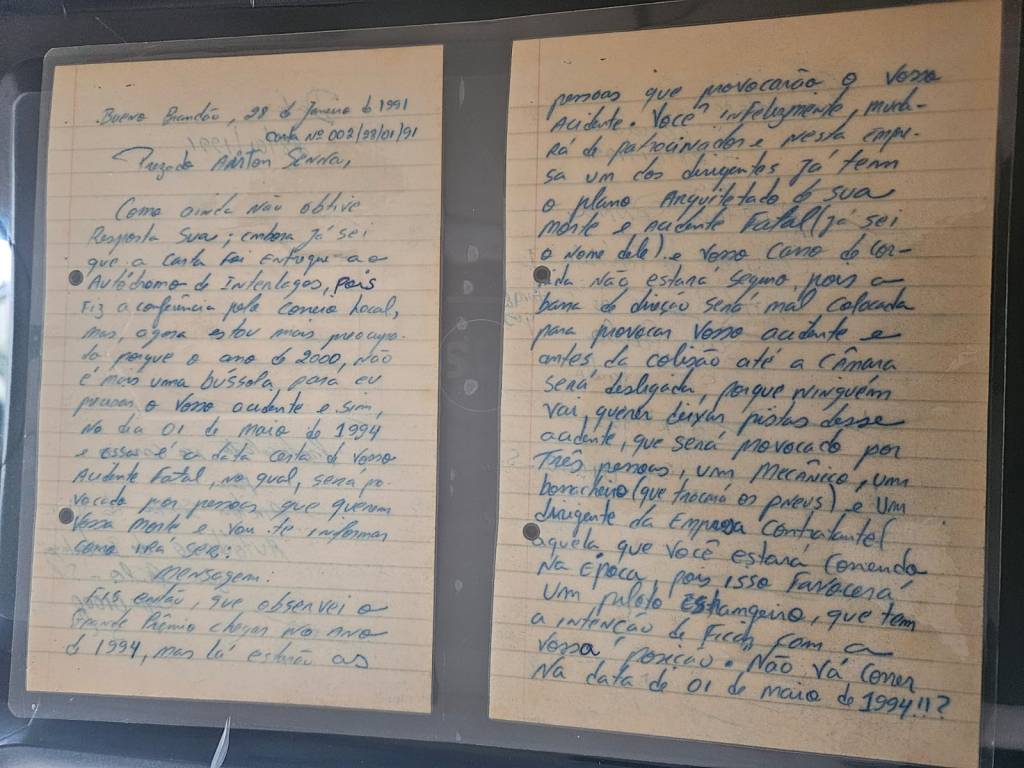 Bueno Brandão, 28 de Janeiro de 1991
Carta Nº 002/28/01/91
Prezado Airton Senna,
Como ainda não obtive
Resposta sua; embora já sei
que a carta foi entregue ao
Autódromo de Interlagos, pois
Fiz a conferência pelo correio local,
mas, agora estou mais preocupa-
do porque o ano de 2000, não
é mais uma bússola, para eu
o vosso acidente e sim,
no dia 01 de maio de 1994
e essa é a data certa de vosso
Acidente Fatal, no qual, será po-
vocado por pessoas que querem
Vossa morte e vou-te informar
como irá ser:
Mensagem:
então, que observei o
Grande Prêmio chegar no ano
de 1994, mas lá estarão as
pessoas que provocarão o vosso
Acidente. Você infelizmente, muda-
rá de patrocinador e nesta empre-
sa um dos dirigentes já tem
o plano Arquitetado de sua
morte e acidente Fatal (já sei
o nome dele). e vosso carro de cor-
rida não estará seguro, pois a
barra de direção será mal colocada
para provocar vosso acidente e
antes da colisão até a Câmara
será desligada, porque ninguém
vai querer deixar pistas desse
acidente, que será provocado por
Três pessoas, um Mecânico, um
borracheiro (que trocará os pneus) e um
dirigente da Empresa Contratante (
aquela que você estará Correndo
Na Época, pois isso Favorecerá
um piloto Estrangeiro, que tem
a intenção de Ficar com a
vossa posição. Não vá correr
Na data de 01 de maio de 1994!!?